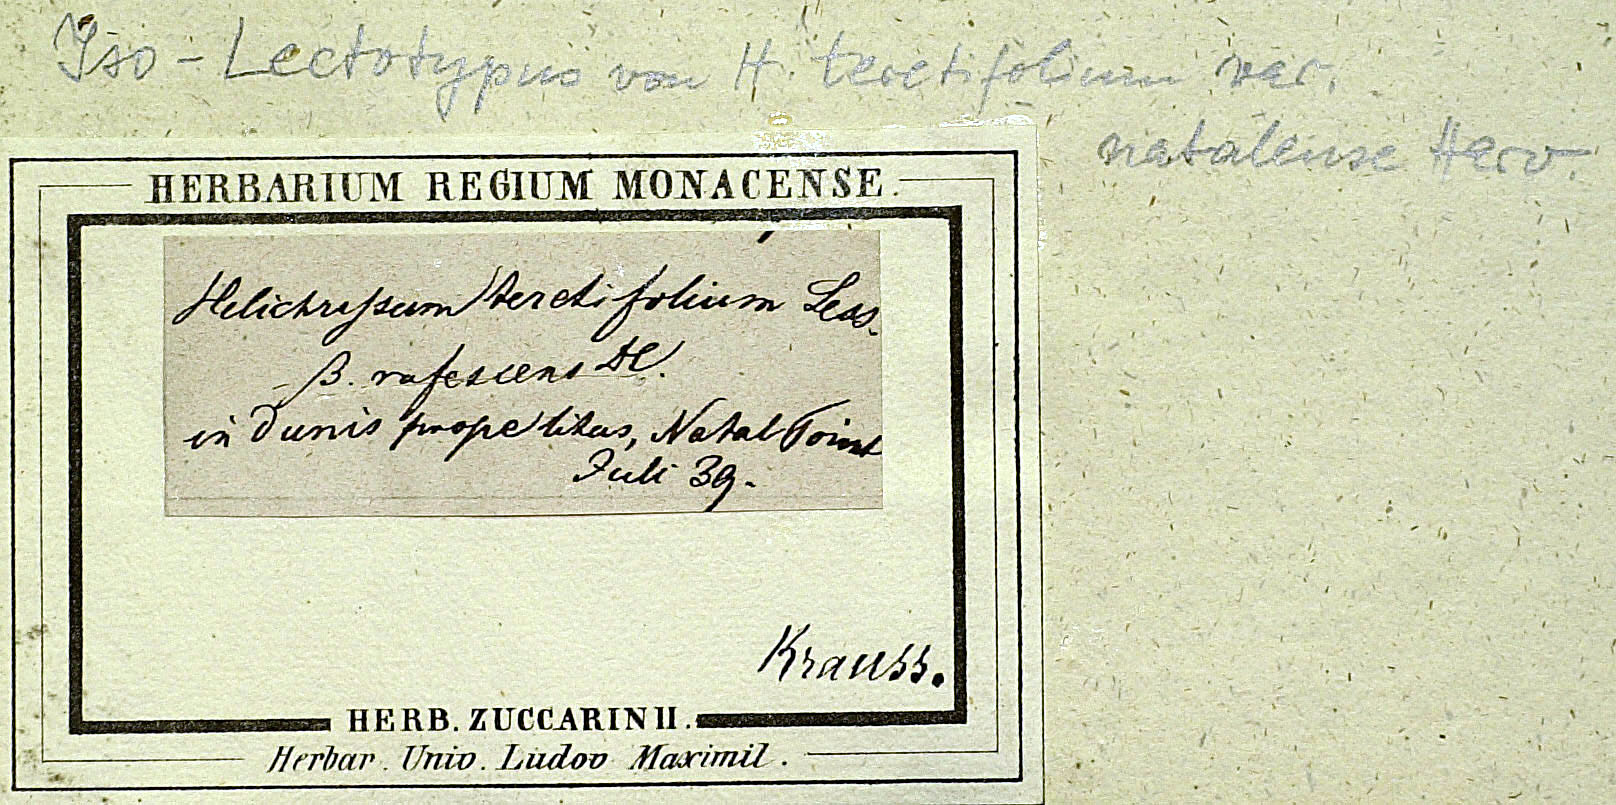 Iso-Lectotypus von H. teretifolium var.
natalense Harv.
HERBARIUM REGIUM MONACENSE.
Helichrysum teretifolium Less.
β. rufescens DC.
in Dunis prope litus, Natal Point
Juli 39.
Krauss.
HERB. ZUCCARINII.
Herbar. Univ. Ludov Maximil.